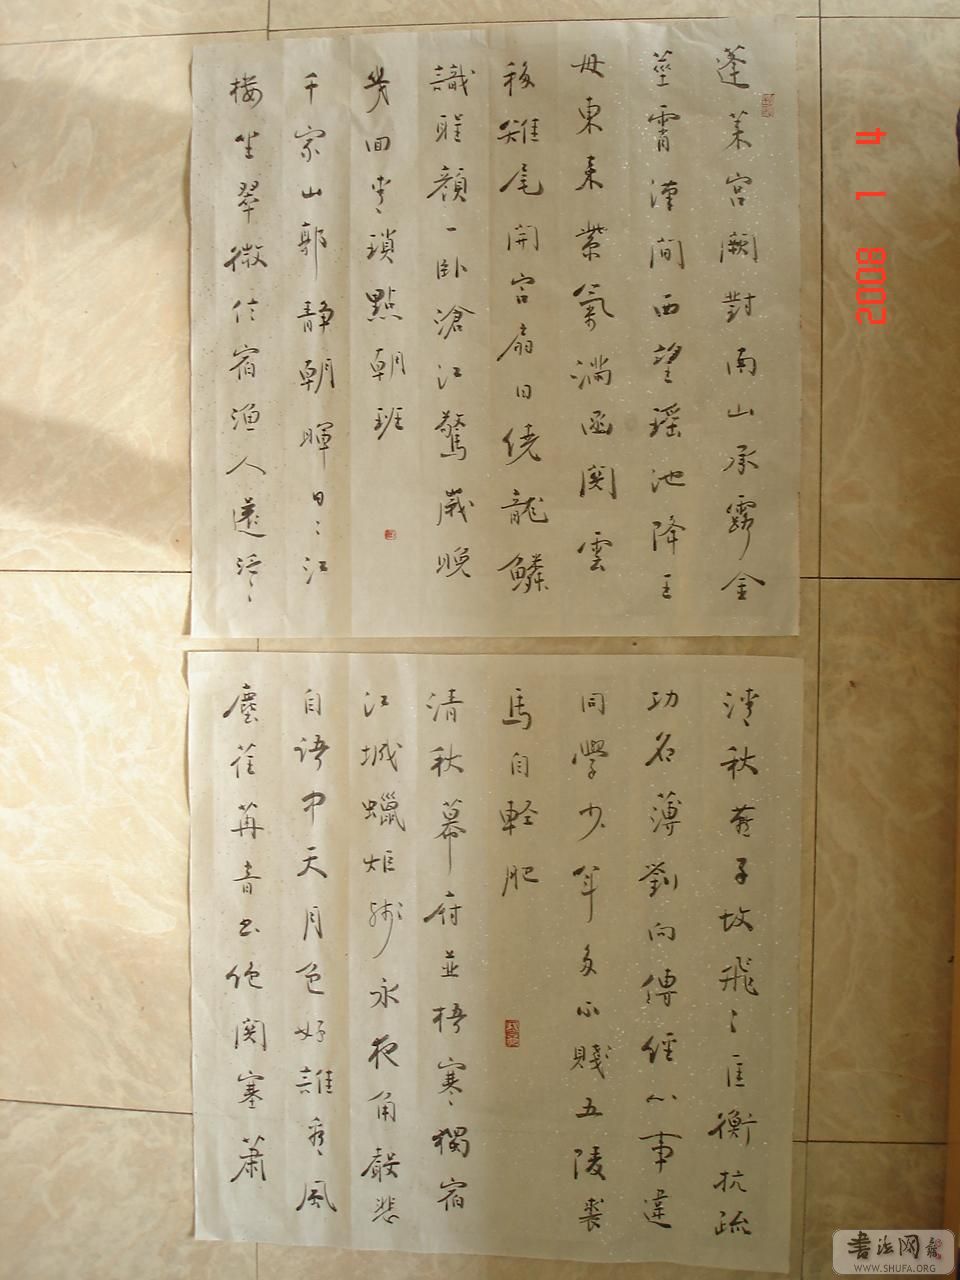 蓬莱宫阙對南山承露金
莖霄漢間西望瑶池降王
母東来紫氣满函関雲
移雉尾開宫扇日繞龍鱗
識聖顔一卧滄江驚歲晚
幾回青瑣點朝班
千家山郭静朝暉日〻江
樓坐翠微信宿漁人還泛〻
清秋燕子故飛〻匡衡抗疏
功名薄劉向傳經心事違
同學少年多不賤五陵裘
馬自輕肥
清秋幕府並梧寒獨宿
江城蠟炬殘永夜角聲悲
自語中天月色好誰看風
塵荏苒音書絶関塞蕭
2008 1 4
書法网
WWW.SHUFA.ORG